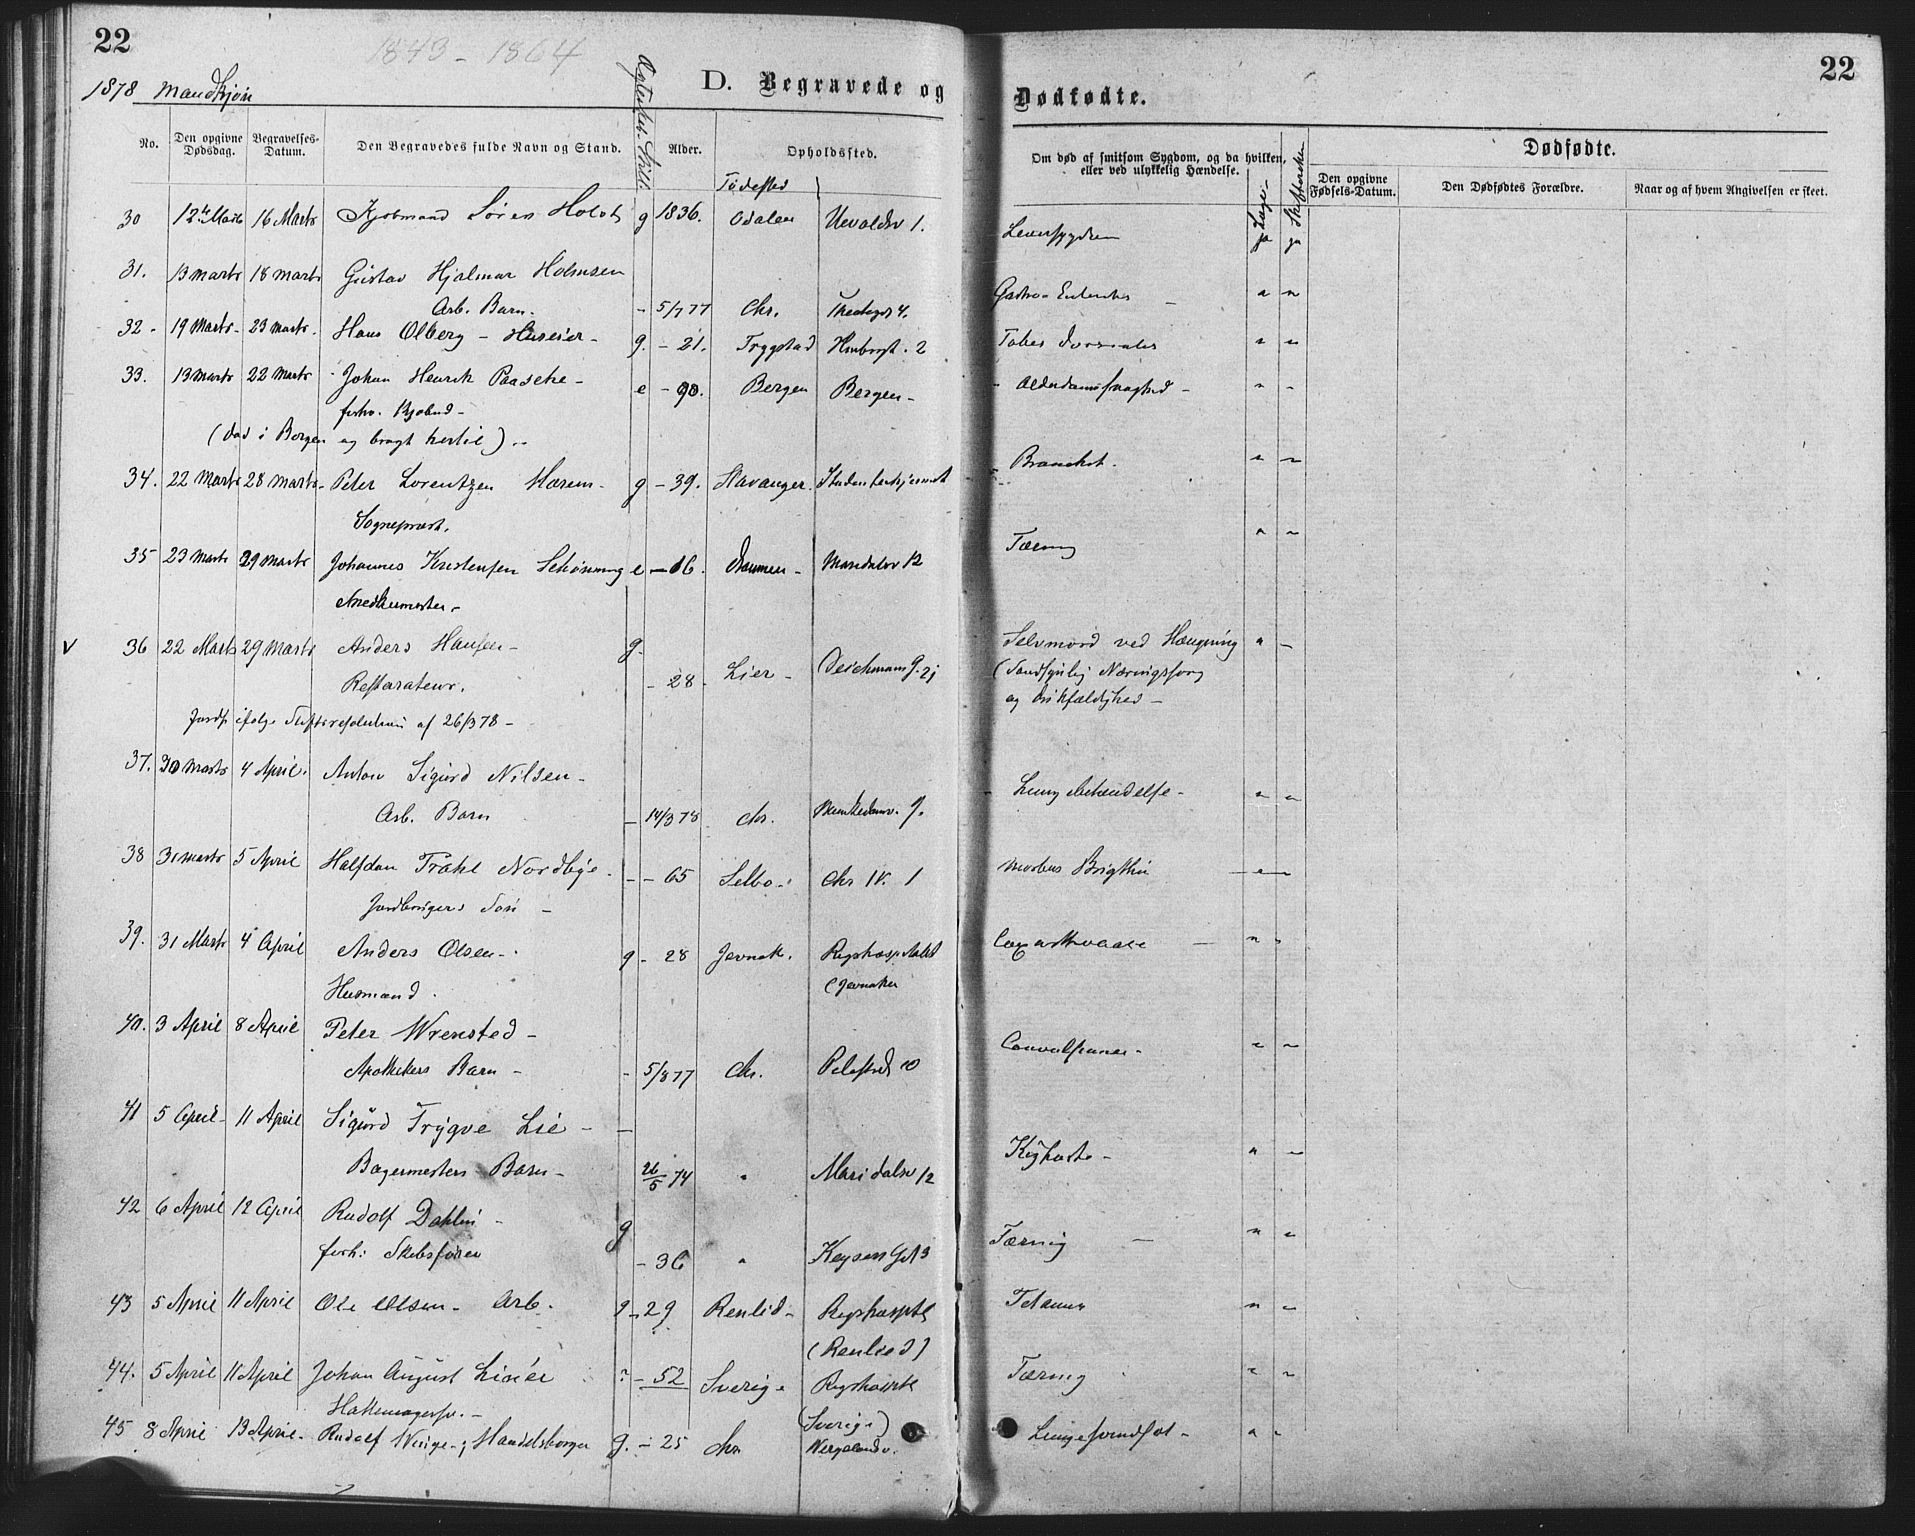 22
1843 - 1864
22
1878 Mandkjøn
D. Begravede og Dødfødte.
No. Den opgivne Dødsdag. Begravelses-Datum. Den Begravedes fulde Navn og Stand. Alder. Opholdssted.
Om død af smitsom Sygdom, og da hvilken, eller ved ulykkelig Hændelse.
Dødfødte.
Den opgivne Fødsels-Datum. Den Dødfødtes Forældre. Naar og af hvem Angivelsen er skeet.
Fødested
30 12te Marts 16 Marts Kjøbmand Sören Holst g 1836. Odalen Uevoldsv 1. Leversygdom ja ja
31. 13 Marts 18 Marts Gustav Hjalmar Holmsen
Arb. Barn. - 5/7 77 Chr. 4. Gastro - "  "
32 - 19 Marts - 23 Marts. Hans Olberg - Huseier - g. - 21. Trygstad 2 Tabes dorsalis " "
33. 13 Marts 22 Marts Johan Henrik Paasche - e - 90. Bergen Bergen - Alderdomssvaghed - " -
forhv. Kjøbmd -
(død i Bergen og bragt hertil) -
34. 22 Marts 28 Marts - Peter Lorentzen Hærem - g - 39. Stavanger. Studenterhjemmet Bronchit. " "
Sogneprest.
35 23 Marts 29 Marts Johannes Kristensen Schönning e - 16. Maridalsv 12 Tæring " "
Snedkermester -
V 36 22 Marts 29 Marts Anders Hansen - g. - 28 - Lier - Deichmans G. 21 Selvmord ved Hængning " -
Restaurateur. (Sandsynlig Næringssorg
og Drikfældighed -
Jordf. ifølge Stiftsresolution af 26/3 78 -
37. 30 Marts 4 April. Anton Sigurd Nilsen -
Arb. Barn - 14/3 78 Chr. Munkedamsv. 9. Lungebetændelse - " "
38 31 Marts 5 April Halfdan Nordbye - - - 65 Selbo. Chr IV. 1 Morbus Brigthii - " -
Jordbrugers Søn -
39. 31 Marts 4 April Anders Olsen - g - 28 Jevnak. Rigshospitalet - " "
Husmand. (Jevnaker
40. 3 April 8 April Peter Wrensted -
Apothekers Barn - - 5/8 77 Chr. Pilestræd 10 Convulsioner - " "
41 5 April - 11 April Sigurd Trygve Lie - -
Bagermesters Barn - 26/5 74 " Maridalsv 12 Kighoste - " "
42 6 April 12 April Rudolf Dahlin - g
forh: Skibsfører - 36 " Keysers Gd 3 Tæring - " "
43 5 April 11 April Ole Olsen - Arb. g - 29 Renlid - Rigshospit Tetanus " "
(Renlied)
44. 5 April 11 April Johan August ? - 52 Sverige Rigshospit Tæring " "
Hattemagersv. - (Sverige)
45 8 April 13 April - Rudolf Winge - Handelsborger g. - 25 Chr. Wergelandsv. Lungesvindsot - " -